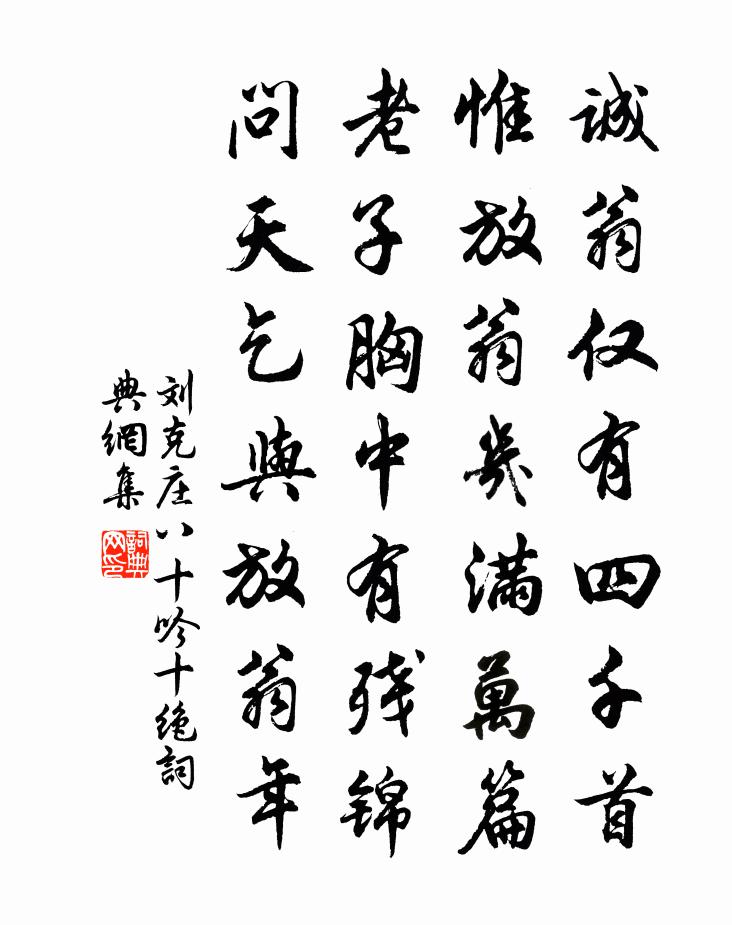 誠翁仅有四千首
惟放翁幾满萬篇
老子胸中有残锦
問天乞與放翁年
刘克庄八十吟十绝詞
典網集
詞典
网印